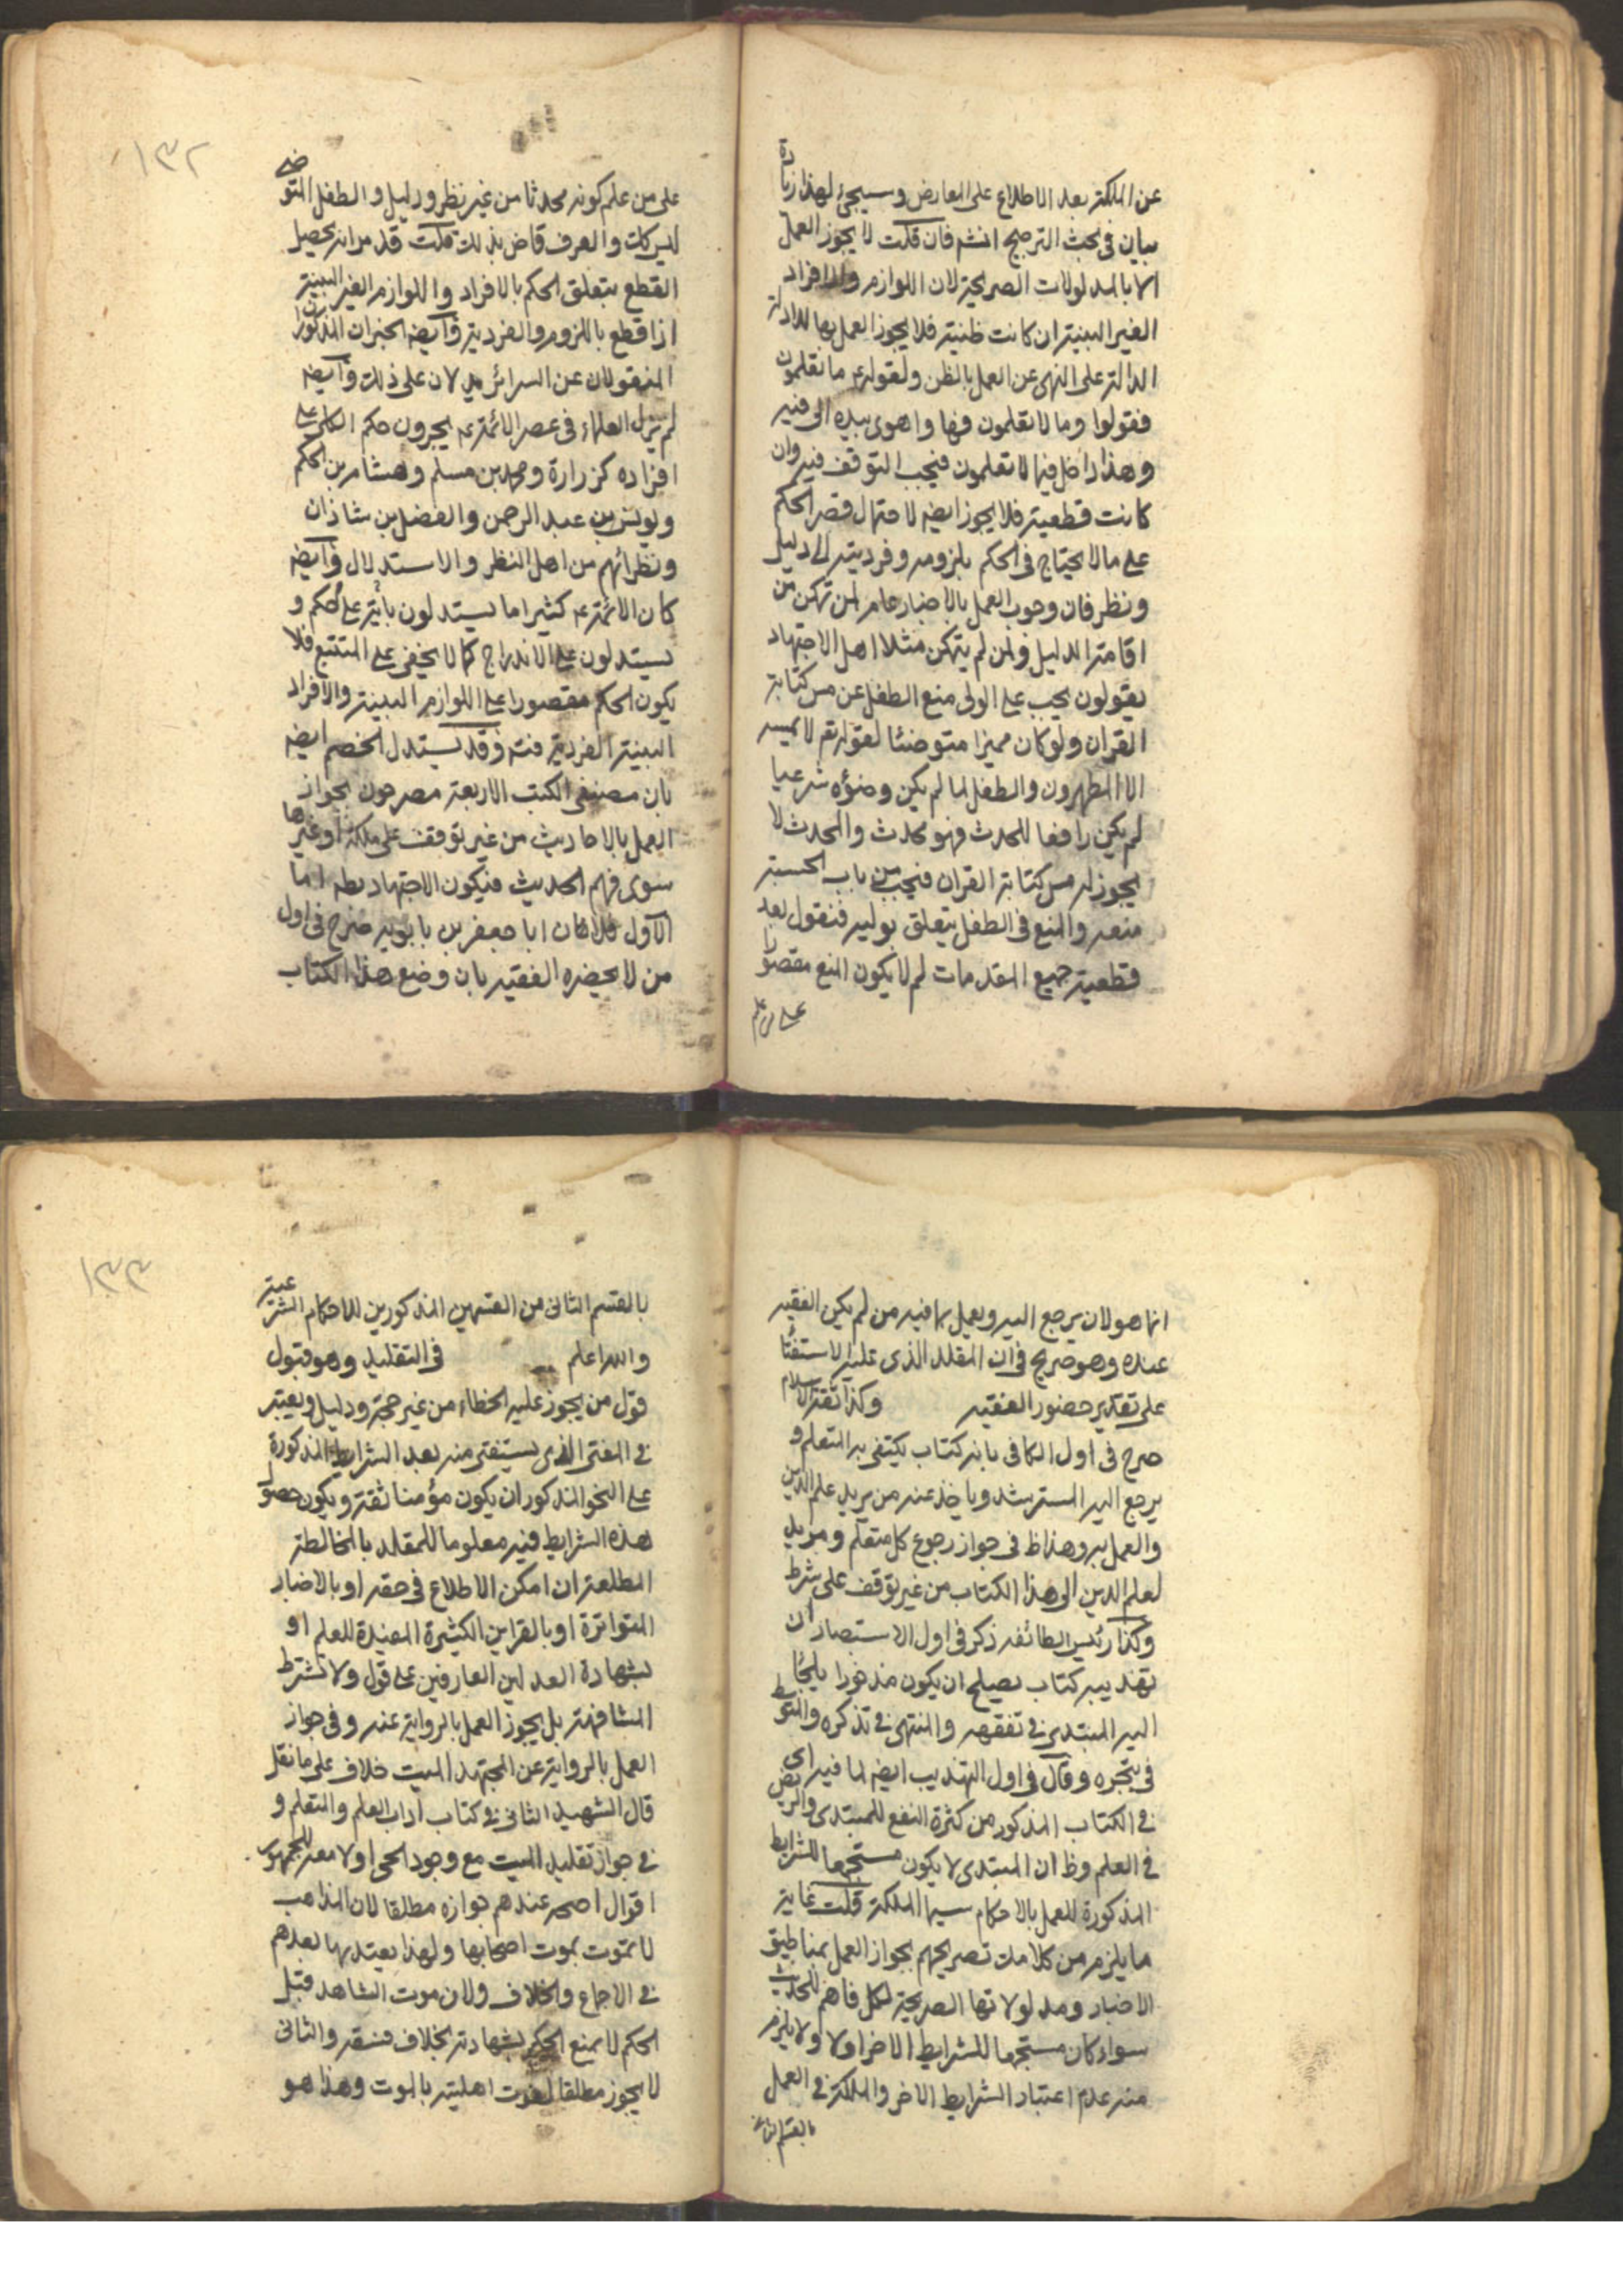 عن الملكة بعد الاطلاع على المعارض وسيجئ لهذا زيادة
بيان في بحث الترجيح انشم فان قلت لا يجوز العمل
الا بالمدلولات الصريحة لان اللوازم والافراد
الغير البينة ان كانت ظنية فلا يجوز العمل بها للادلة
الدالة على النهى عن العمل بالظن ولقوله ع ما تعلمون
فقولوا وما لا تعلمون فها واهوى بيده الى فيه
وهذا داخل فيما لا تعلمون فيجب التوقف فيه وان
كانت قطعية فلا يجوز ايضه لاحتمال قصر الحكم
على ما لا يحتاج في الحكم بلزومه وفرديته الى دليل
ونظر فان وجوب العمل بالاخبار عام لمن تمكن من
اقامة الدليل ولمن لم يتمكن مثلا اهل الاجتهاد
يقولون يجب على الولى منع الطفل عن مس كتابة
القران ولو كان مميزا متوضئا لقوله تم لا يمسه
الا المطهرون والطفل لما لم يكن وضوءه شرعيا
لم يكن رافعا للحدث فهو محدث والمحدث لا
يجوز له مس كتابة القران فيجب من باب الحسبة
منعه والمنع في الطفل يتعلق بوليه فنقول بعد
قطعية جميع المقدمات لم لا يكون المنع مقصورا
على من علم
١٣٢
على من علم كونه محدثا من غير نظر ودليل والطفل المتوضى
ليس كك والعرف قاض بذلك قلت قد مر انه يحصل
القطع بتعلق الحكم بالافراد واللوازم الغير البينة
اذا قطع باللزوم والفردية وايضه الخبران المذكوران
المنقولان عن السرائر يدلان على ذلك وايضه
لم يزل العلماء في عصر الائمة ع يجرون حكم الكلى على
افراده كزرارة ومحمد بن مسلم وهشام بن الحكم
ويونس بن عبد الرحمن والفضل بن شاذان
ونظرائهم من اهل النظر والاستدلال وايضه
كان الائمة ع كثيرا ما يستدلون بآية على حكم و
يستدلون على الاندراج كما لا يخفى على المتتبع فلا
يكون الحكم مقصورا على اللوازم البينة والافراد
البينة الفردية فتم وقد يستدل الخصم ايضه
بان مصنفى الكتب الاربعة مصرحون بجواز
العمل بالاحاديث من غير توقف على ملكة او غيرها
سوى فهم الحديث فيكون الاجتهاد بط اما
الاول فلان ابا جعفر بن بابويه صرح في اول
من لا يحضره الفقيه بان وضع هذا الكتاب
انما هو لان يرجع اليه ويعمل بما فيه من لم يكن الفقيه
عنده وهو صريح في ان المقلد الذى عليه الاستفتا
على تقدير حضور الفقيه وكذا ثقة الاسلام
صرح في اول الكافى بانه كتاب يكتفى به المتعلم و
يرجع اليه المسترشد وياخذ عنه من يريد علم الدين
والعمل به وهذا ظ في جواز رجوع كل متعلم ومريد
لعلم الدين الى هذا الكتاب من غير توقف على شرط
وكذا رئيس الطائفه ذكر في اول الاستبصار ان
تهذيبه كتاب يصلح ان يكون مذخورا يلجأ
اليه المبتدى في تفقهه والمنتهى في تذكره والمتوسط
في تبحره وقال في اول التهذيب ايضه لما فيه اى
في الكتاب المذكور من كثرة النفع للمبتدى والريض
في العلم وظ ان المبتدى لا يكون مستجمعا للشرايط
المذكورة للعمل بالاحكام سيما الملكة قلت غاية
ما يلزم من كلامك تصريحهم بجواز العمل بمناطيق
الاخبار ومدلولاتها الصريحة لكل فاهم للحديث
سواء كان مستجمعا للشرايط الاخر او لا ولا يلزم
منه عدم اعتبار الشرايط الاخر والملكة في العمل
بالقسم الثانى
١٣٣
بالقسم الثانى من القسمين المذكورين للاحكام الشرعية
والله اعلم في التقليد وهو قبول
قول من يجوز عليه الخطاء من غير حجة ودليل ويعتبر
في المفتى الذى يستفتى منه بعد الشرايط المذكورة
على النحو المذكور ان يكون مؤمنا ثقة ويكون حصول
هذه الشرايط فيه معلوما للمقلد بالمخالطة
المطلعة ان امكن الاطلاع في حقه او بالاخبار
المتواترة او بالقراين الكثيرة المفيدة للعلم او
بشهادة العدلين العارفين على قول ولا تشترط
المشافهة بل يجوز العمل بالرواية عنه وفى جواز
العمل بالرواية عن المجتهد الميت خلاف على ما نقل
قال الشهيد الثانى في كتاب اداب العلم والمتعلم و
في جواز تقليد الميت مع وجود الحى اولا معه للجمهور
اقوال اصحه عندهم جوازه مطلقا لان المذاهب
لا تموت بموت اصحابها ولهذا يعتد بها بعدهم
في الاجماع والخلاف ولان موت الشاهد قبل
الحكم لا يمنع الحكم بشهادته بخلاف فسقه والثانى
لا يجوز مطلقا لفوت اهليته بالموت وهذا هو